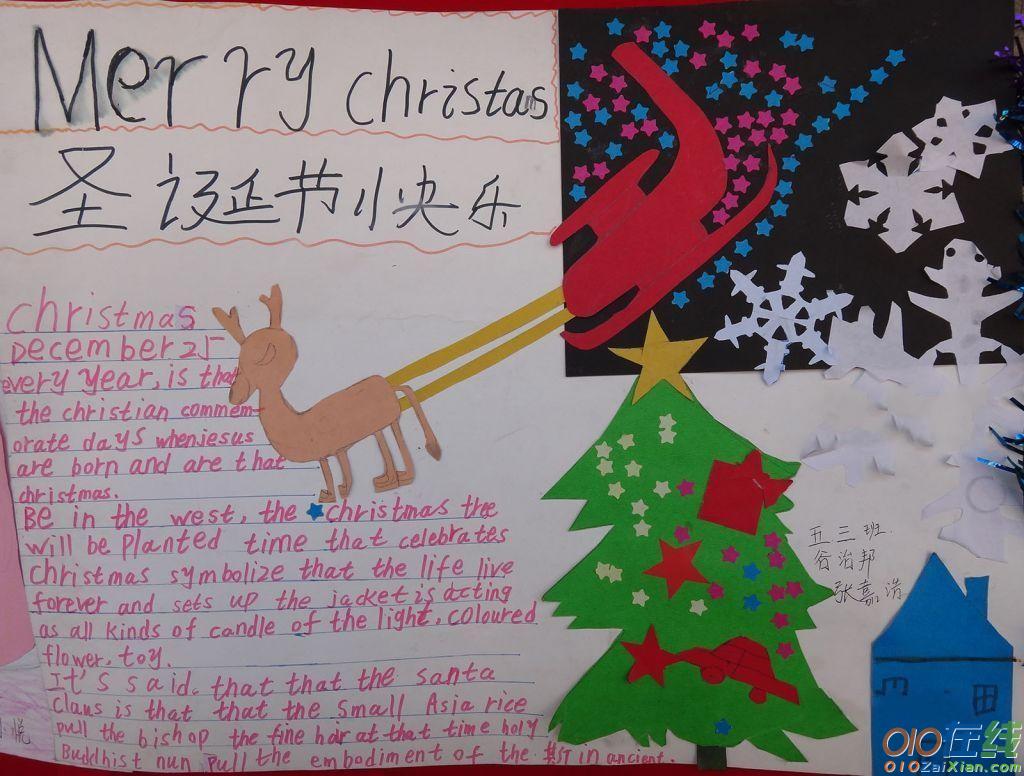 Merry christas
圣诞节快乐
christmas
December 25
every year, is that
the christian commem-
orate days when jesus
are born and are that
christmas.
Be in the west, the christmas tree
will be planted time that celebrates
christmas symbolize that the life live
forever and sets up the jacket is acting
as all kinds of candle of the light, coloured
flower, toy.
It's said. that that the santa
claus is that that the small Asia rice
pull the bishop the fine har at that time holy
Buddhist nun pull the embodiment of the in ancient.
五三班.
谷治邦
张嘉浩
悦
010在线
010ZaiXian.com